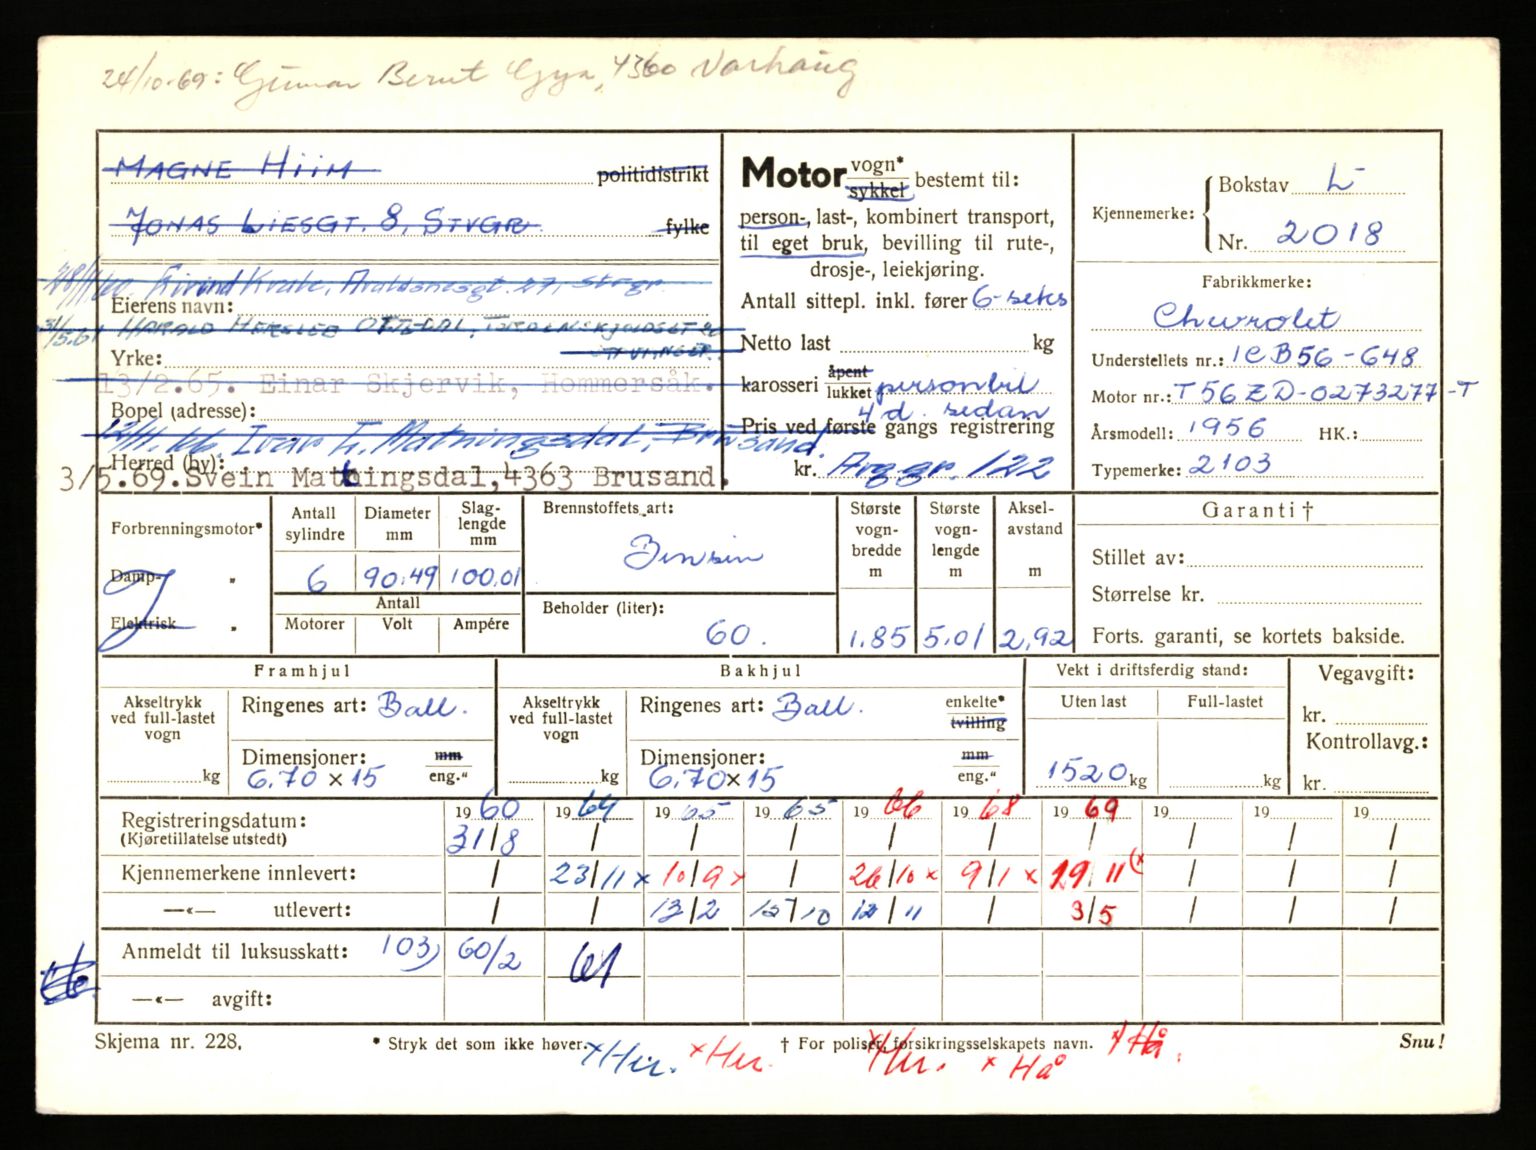 24/10-69: Gunnar Bernt Gya, 4360 Varhaug
MAGNE HIIM politidistrikt
JONAS LIESGT. 8, STVGR. fylke
Eivind Kvale, Araldsnesgt. 27, Stvgr.
Eierens navn:
31/5.61 HARALD HERSLEB OTTEDAL, TORDENSKJOLDSGT
STAVANGER.
Yrke:
13/2.65. Einar Skjervik, Hommersåk.
Bopel (adresse):
12/11.66 Ivar T. Matningsdal, Brusand.
Herred (by):
3/5.69. Svein Matningsdal, 4363 Brusand.
Motor vogn* sykkel bestemt til:
person-, last-, kombinert transport,
til eget bruk, bevilling til rute-,
drosje-, leiekjøring.
Antall sittepl. inkl. fører 6-seks
Netto last kg
karosseri åpent lukket personbil
4 d. sedan
Pris ved første gangs registrering
kr. Avg.gr. 122
Kjennemerke: Bokstav L-
Nr. 2018
Fabrikkmerke:
Chevrolet
Understellets nr.: 1CB56-648
Motor nr.: T56ZD-0273277-T
Årsmodell: 1956 HK.:
Typemerke: 2103
Forbrenningsmotor*
Damp- "
Elektrisk "
Antall sylindre 6
Diameter mm 90.49
Slaglengde mm 100.01
Antall
Motorer Volt Ampére
Brennstoffets art:
Bensin
Beholder (liter):
60.
Største vognbredde m 1.85
Største vognlengde m 5.01
Akselavstand m 2,92
Garanti†
Stillet av:
Størrelse kr.
Forts. garanti, se kortets bakside.
Framhjul
Akseltrykk ved full-lastet vogn kg
Ringenes art: Ball.
Dimensjoner: mm eng."
6.70 x 15
Bakhjul
Akseltrykk ved full-lastet vogn kg
Ringenes art: Ball. enkelte* tvilling
Dimensjoner: mm eng."
6.70 x 15
Vekt i driftsferdig stand:
Uten last Full-lastet
1520 kg kg
Vegavgift:
kr.
Kontrollavg.:
kr.
19 60 19 64 19 65 19 65 19 66 19 68 19 69 19 19 19
Registreringsdatum:
(Kjøretillatelse utstedt) 31/8 / / / / / / / / /
Kjennemerkene innlevert: / 23/11 x 10/9 x / 26/10 x 9/1 x 29/11 x / / /
—«— utlevert: / / 13/2 15/10 12/11 / 3/5 / / /
Anmeldt til luksusskatt: 103) 60/2 61
—«— avgift:
Skjema nr. 228.
* Stryk det som ikke høver.
† For poliser, forsikringsselskapets navn.
Snu!
x Her. x Her. x Her. x Hå x Hå.